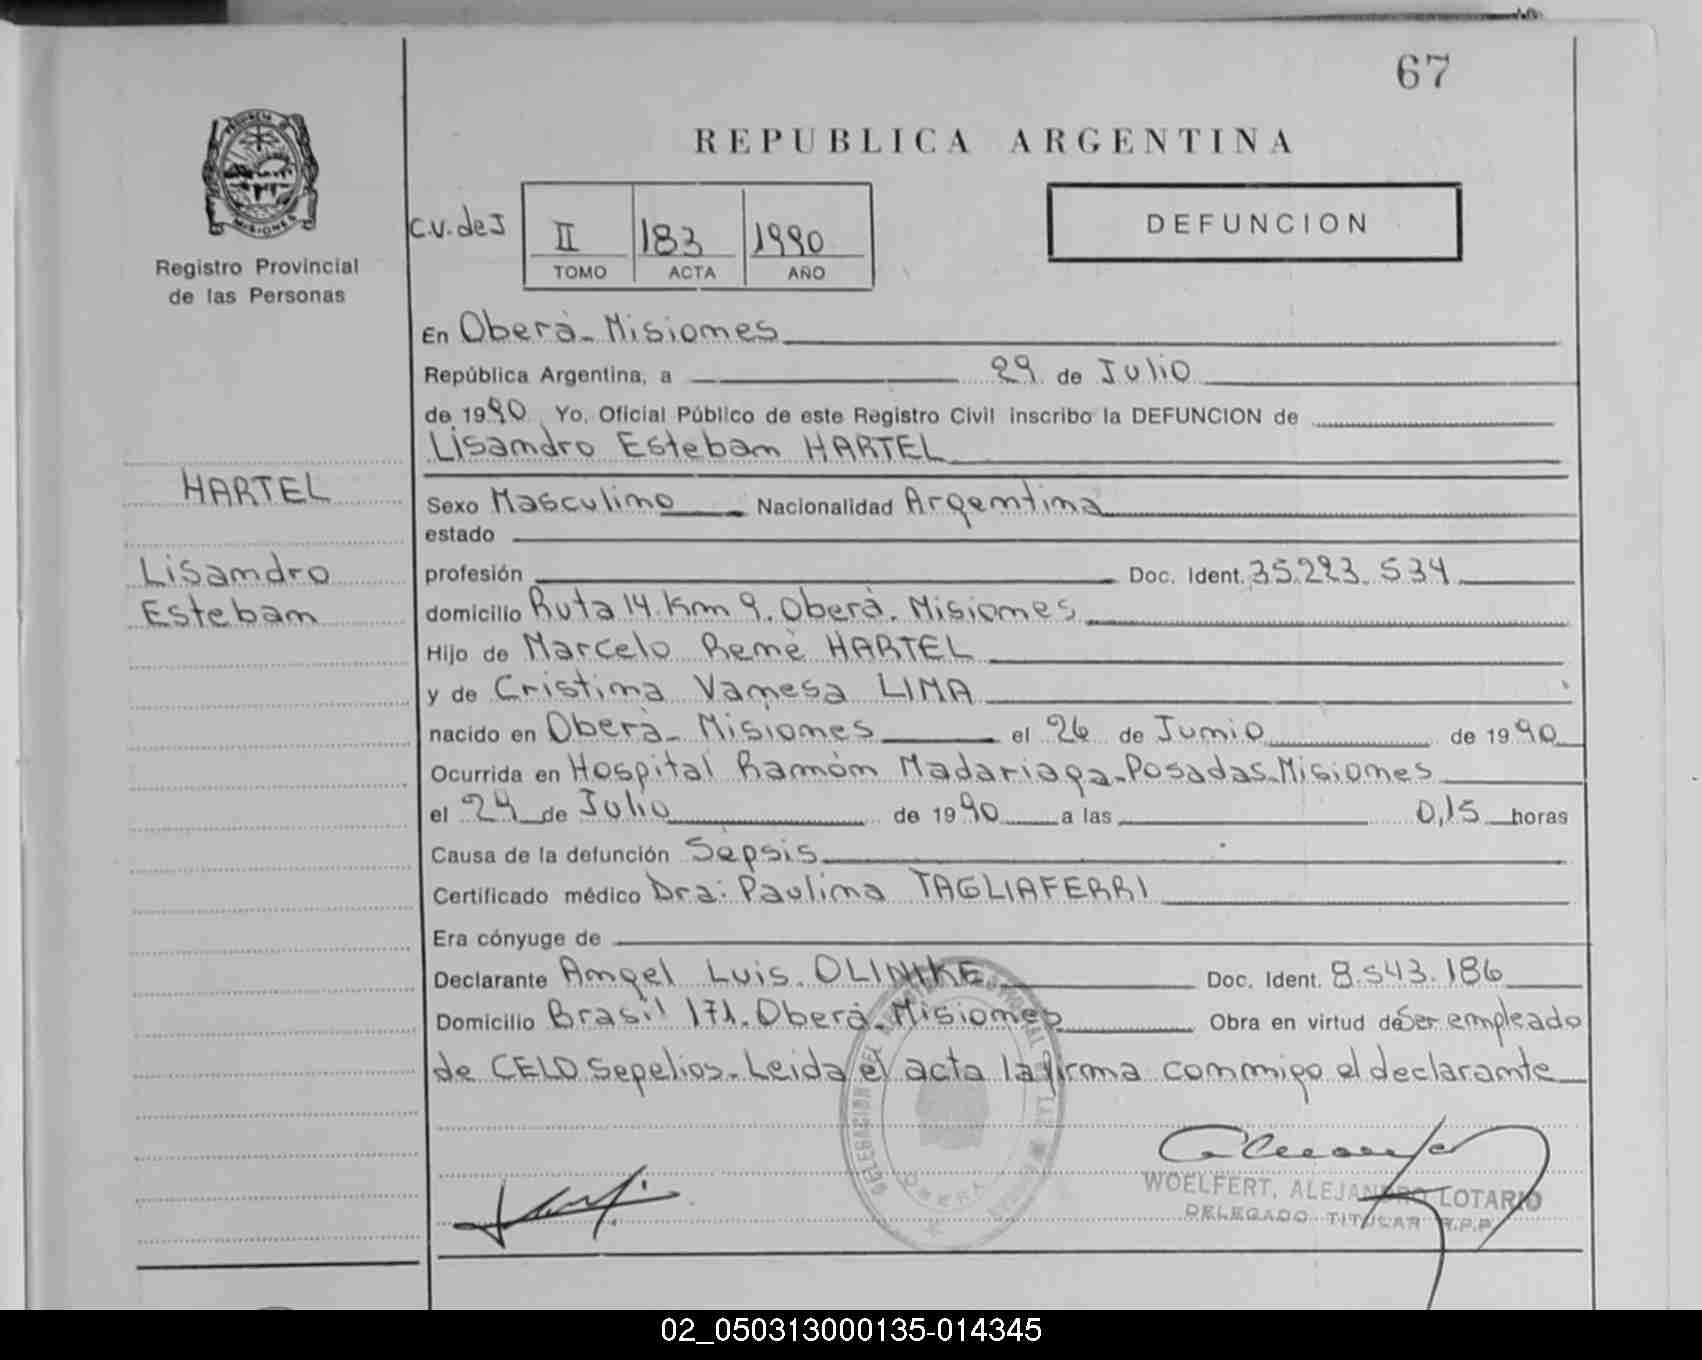 67
PROVINCIA DE
MISIONES
REPUBLICA ARGENTINA
C.V. de J
II 183 1990
TOMO ACTA AÑO
DEFUNCION
Registro Provincial
de las Personas
En Oberà - Misiones
República Argentina, a 29 de Julio
de 1990 Yo, Oficial Público de este Registro Civil inscribo la DEFUNCION de
Lisandro Esteban HARTEL
HARTEL
Lisandro
Esteban
Sexo Masculino Nacionalidad Argentina
estado
profesión Doc. Ident. 35.223.534
domicilio Ruta 14. Km 9. Oberà. Misiones
Hijo de Marcelo Renè HARTEL
y de Cristina Vanesa LIMA
nacido en Oberà - Misiones el 26 de Junio de 1990
Ocurrida en Hospital Ramón Madariaga - Posadas - Misiones
el 29 de Julio de 1990 a las 0,15 horas
Causa de la defunción Sepsis
Certificado médico Dra: Paulina TAGLIAFERRI
Era cónyuge de
Declarante Angel Luis. OLINIKE Doc. Ident. 8.543.186
Domicilio Brasil 171. Oberà. Misiones Obra en virtud de Ser empleado
de CELO Sepelios - Leida el acta la firma conmigo el declarante
DELEGACION DEL
OBERA
WOELFERT, ALEJANDRO LOTARIO
DELEGADO TITULAR R.P.P.
02_050313000135-014345